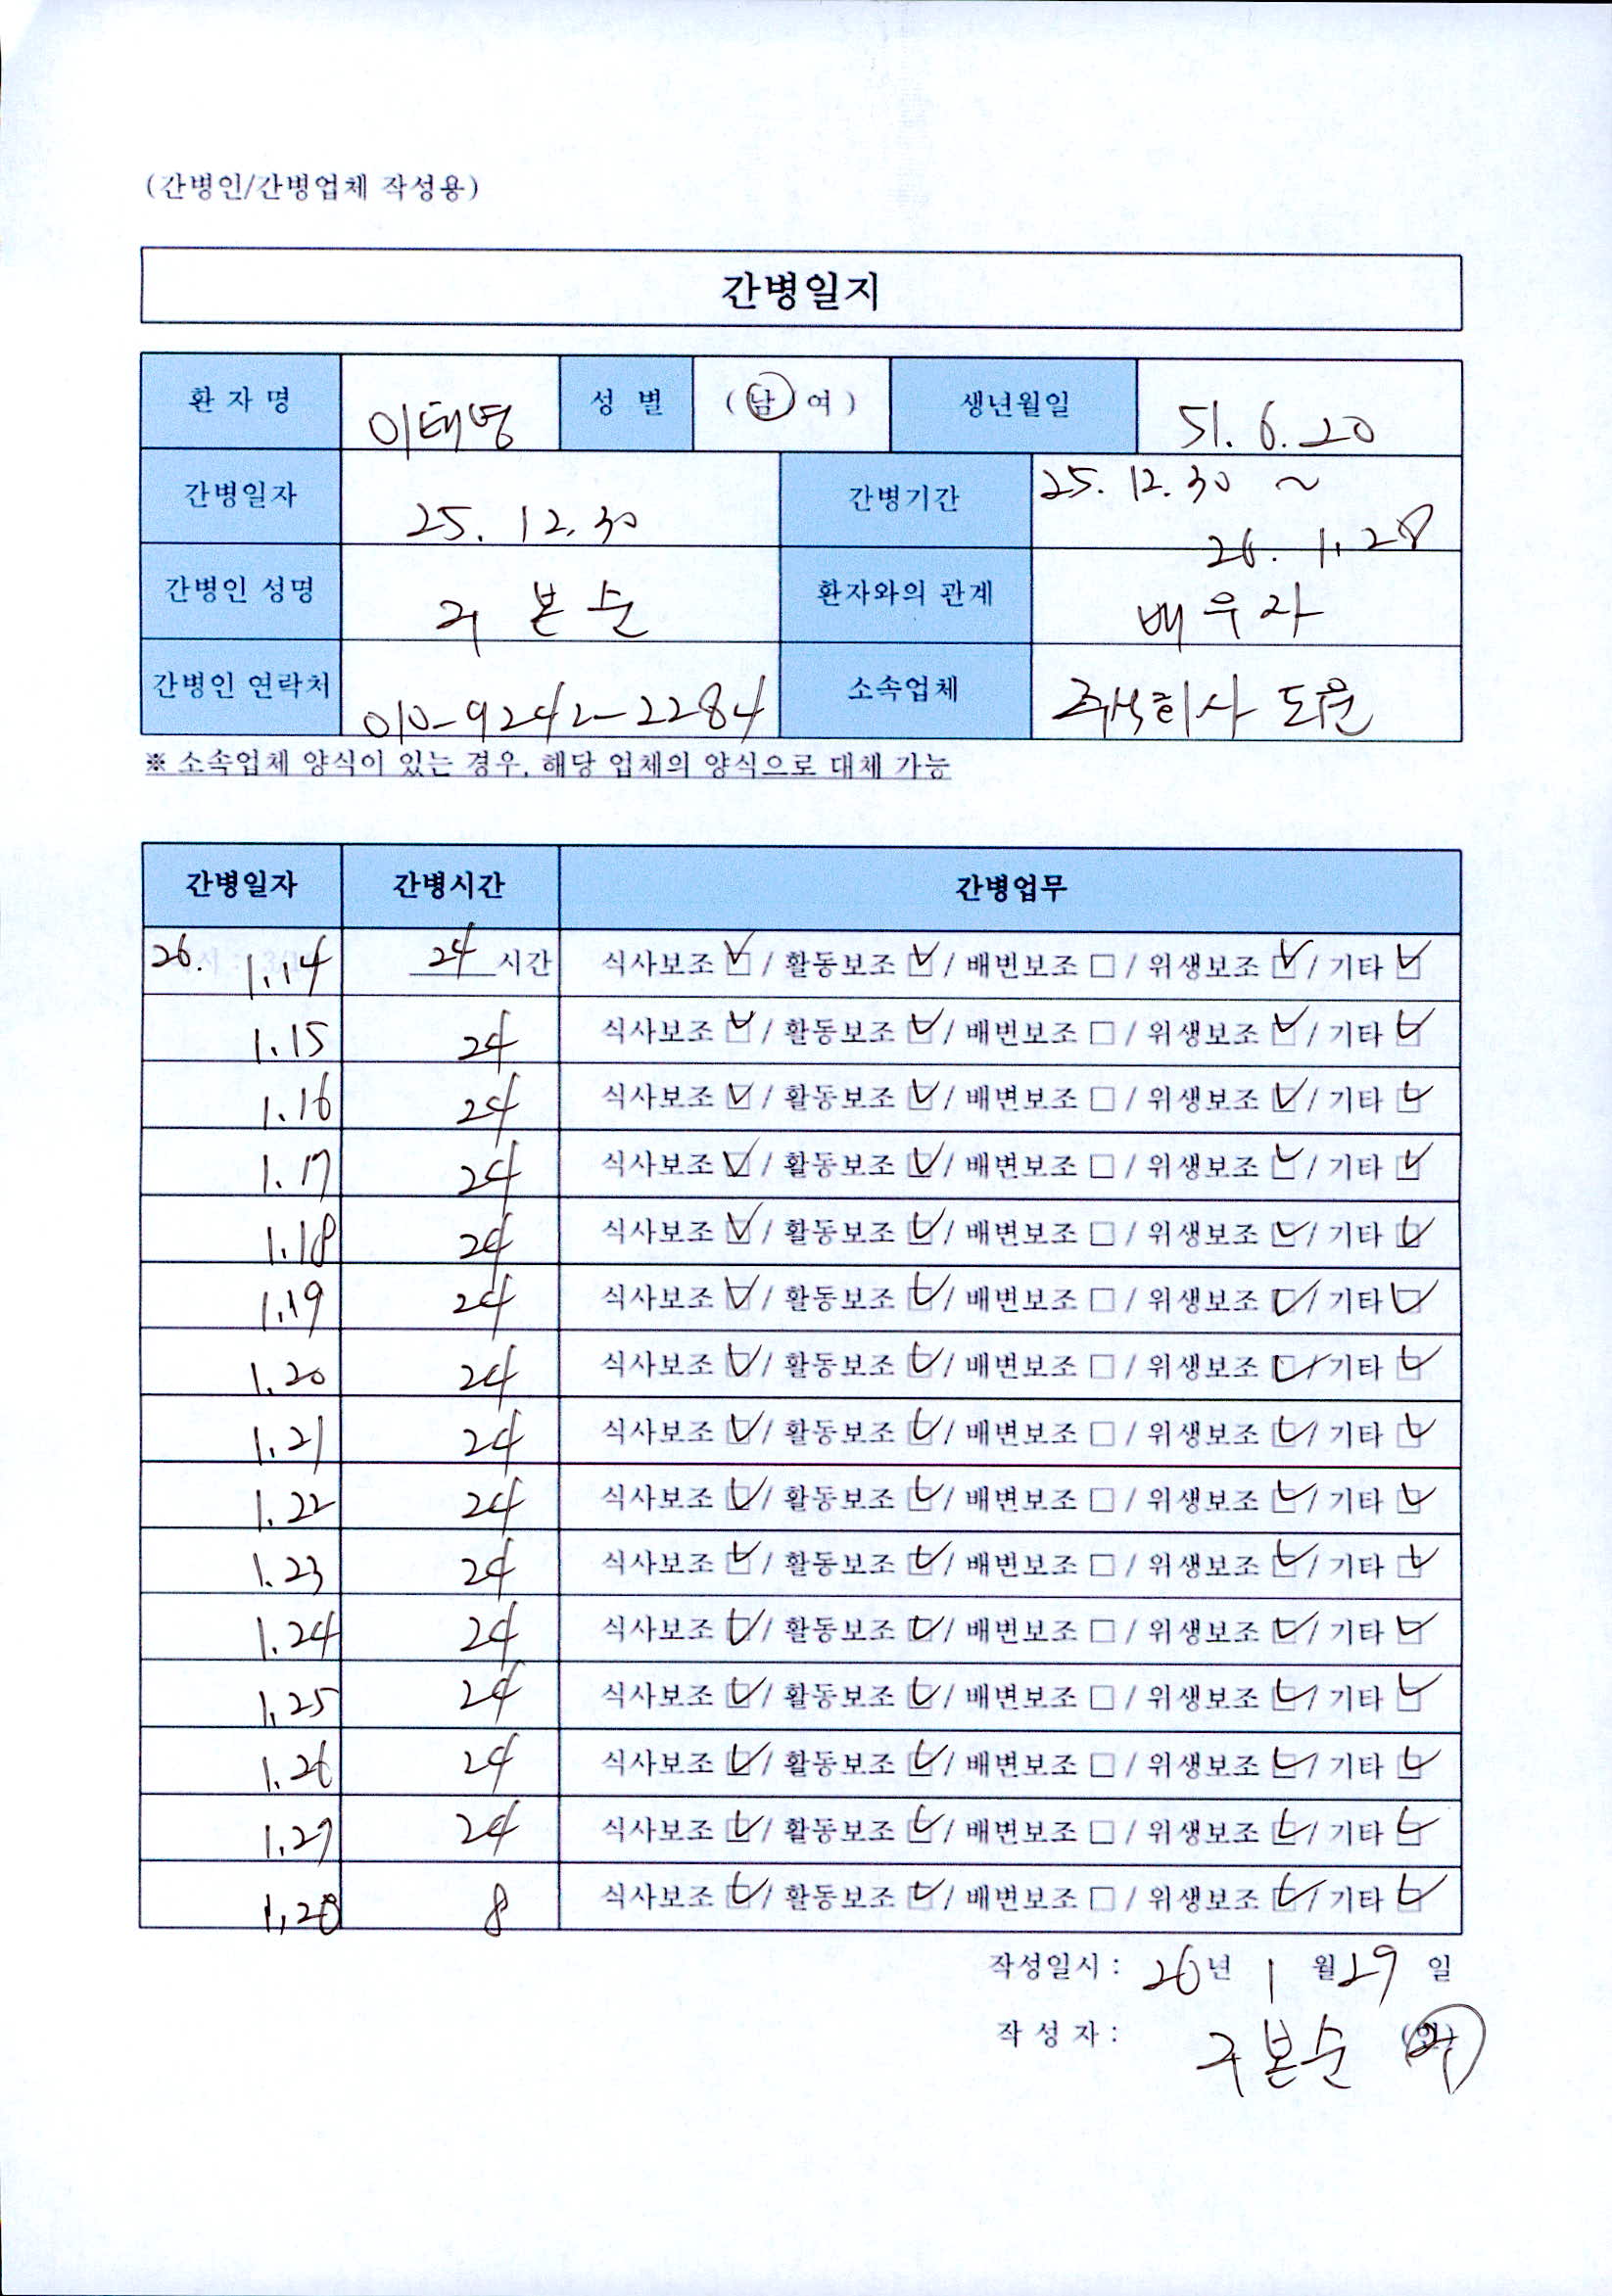 (간병인/간병업체 작성용)
간병일지
환 자 명 이태영 성 별 (남 여) 생년월일 51. 6. 20
간병일자 25. 12. 30 간병기간 25. 12. 30 ~
26. 1. 28
간병인 성명 구 본 순 환자와의 관계 배우자
간병인 연락처 010-9242-2284 소속업체 주식회사 도원
※ 소속업체 양식이 있는 경우, 해당 업체의 양식으로 대체 가능
간병일자 간병시간 간병업무
26. 1.14 24 시간 식사보조 ☑ / 활동보조 ☑ / 배변보조 □ / 위생보조 ☑ / 기타 ☑
1.15 24 식사보조 ☑ / 활동보조 ☑ / 배변보조 □ / 위생보조 ☑ / 기타 ☑
1.16 24 식사보조 ☑ / 활동보조 ☑ / 배변보조 □ / 위생보조 ☑ / 기타 ☑
1.17 24 식사보조 ☑ / 활동보조 ☑ / 배변보조 □ / 위생보조 ☑ / 기타 ☑
1.18 24 식사보조 ☑ / 활동보조 ☑ / 배변보조 □ / 위생보조 ☑ / 기타 ☑
1.19 24 식사보조 ☑ / 활동보조 ☑ / 배변보조 □ / 위생보조 ☑ / 기타 ☑
1.20 24 식사보조 ☑ / 활동보조 ☑ / 배변보조 □ / 위생보조 ☑ / 기타 ☑
1.21 24 식사보조 ☑ / 활동보조 ☑ / 배변보조 □ / 위생보조 ☑ / 기타 ☑
1.22 24 식사보조 ☑ / 활동보조 ☑ / 배변보조 □ / 위생보조 ☑ / 기타 ☑
1.23 24 식사보조 ☑ / 활동보조 ☑ / 배변보조 □ / 위생보조 ☑ / 기타 ☑
1.24 24 식사보조 ☑ / 활동보조 ☑ / 배변보조 □ / 위생보조 ☑ / 기타 ☑
1.25 24 식사보조 ☑ / 활동보조 ☑ / 배변보조 □ / 위생보조 ☑ / 기타 ☑
1.26 24 식사보조 ☑ / 활동보조 ☑ / 배변보조 □ / 위생보조 ☑ / 기타 ☑
1.27 24 식사보조 ☑ / 활동보조 ☑ / 배변보조 □ / 위생보조 ☑ / 기타 ☑
1.28 8 식사보조 ☑ / 활동보조 ☑ / 배변보조 □ / 위생보조 ☑ / 기타 ☑
작성일시 : 26년 1 월 29 일
작 성 자 : 구본순 (인)